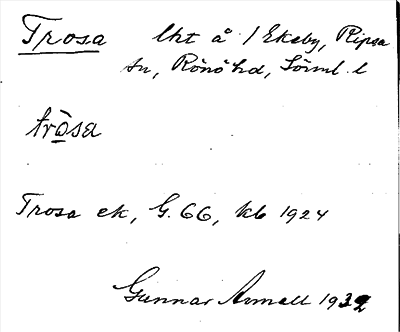 Trosa lht å /Ekeby, Ripsa
sn, Rönö hd, Sörml. l
tròsa
Trosa ek, G. 66, kb 1924
Gunnar Armell 1932